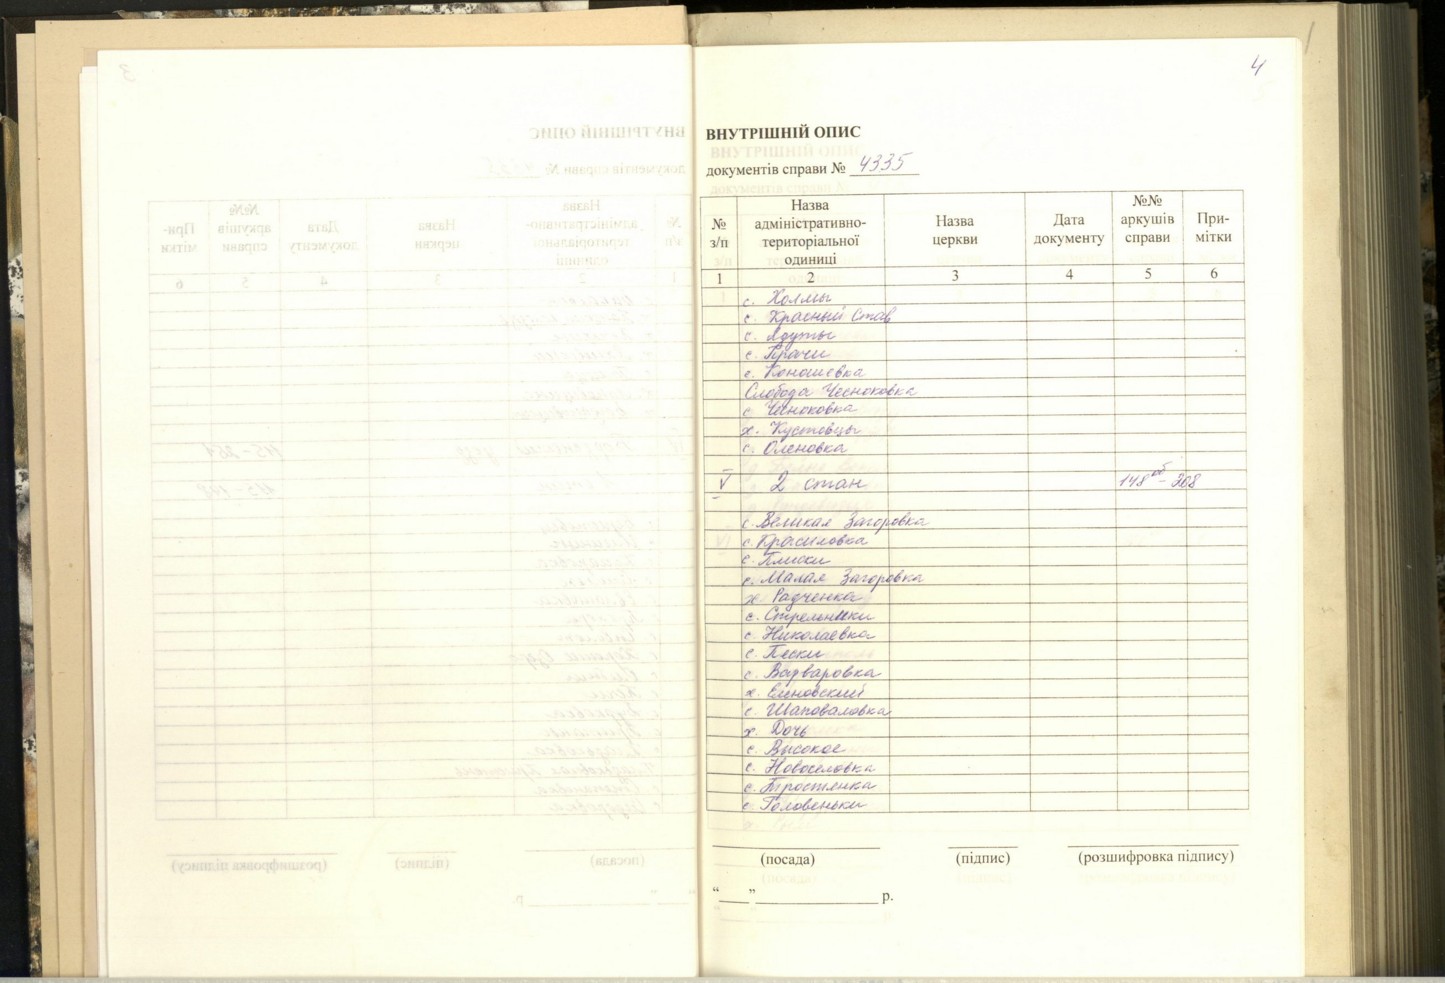 4
ВНУТРІШНІЙ ОПИС
документів справи № 4335
№ з/п
Назва адміністративно-територіальної одиниці
Назва церкви
Дата документу
№№ аркушів справи
При-мітки
1 2 3 4 5 6
с. Холмы
с. Красный Став
с. Ядуты
с. Прачи
с. Коношевка
Слобода Чесноковка
с. Чесноковка
х. Кустовцы
с. Оленовка
V 2 стан 148об - 208
с. Великая Загоровка
с. Красиловка
с. Плиски
с. Малая Загоровка
х. Радченка
с. Стрельники
с. Николаевка
с. Пески
с. Варваровка
х. Еленовский
с. Шаповаловка
х. Дочь
с. Высокое
с. Новоселовка
с. Тростянка
с. Головеньки
(посада) (підпис) (розшифровка підпису)
“____” ____________ р.